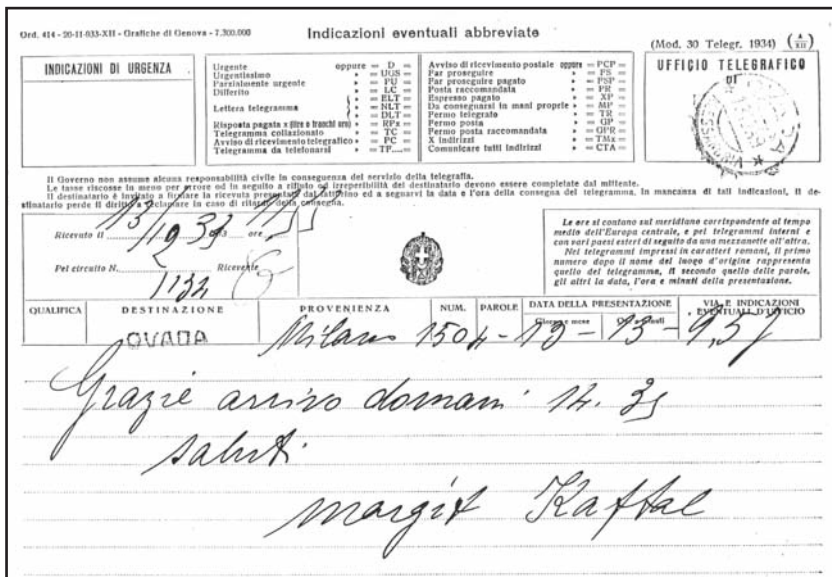 Ord. 414 - 20-11-933-XII - Grafiche di Genova - 7.300.000
Indicazioni eventuali abbreviate
(Mod. 30 Telegr. 1934) (A XII)
INDICAZIONI DI URGENZA
Urgente oppure = D =
Urgentissimo » = UGS =
Parzialmente urgente » = PU =
Differito » = LC =
Lettera telegramma » = ELT =
» = NLT =
» = DLT =
Risposta pagata x (lire o franchi oro) » = RPx =
Telegramma collazionato » = TC =
Avviso di ricevimento telegrafico » = PC =
Telegramma da telefonarsi » = TP..... =
Avviso di ricevimento postale oppure = PCP =
Far proseguire » = FS =
Far proseguire pagato » = FSP =
Posta raccomandata » = PR =
Espresso pagato » = XP =
Da consegnarsi in mani proprie » = MP =
Fermo telegrafo » = TR =
Fermo posta » = GP =
Fermo posta raccomandata » = GPR =
X indirizzi » = TMx =
Comunicare tutti indirizzi » = CTA =
UFFICIO TELEGRAFICO
DI
Il Governo non assume alcuna responsabilità civile in conseguenza del servizio della telegrafia.
Le tasse riscosse in meno per errore od in seguito a rifiuto od irreperibilità del destinatario devono essere completate dal mittente.
Il destinatario è invitato a firmare la ricevuta presentata dal fattorino ed a segnarvi la data e l'ora della consegna del telegramma. In mancanza di tali indicazioni, il de-
stinatario perde il diritto a reclamare in caso di ritardo della consegna.
Ricevuto il 13/12 ore
Pel circuito N. 2 Ricevente
1132
Le ore si contano sul meridiano corrispondente al tempo
medio dell'Europa centrale, e pei telegrammi interni e
con vari paesi esteri di seguito da una mezzanotte all'altra.
Nei telegrammi impressi in caratteri romani, il primo
numero dopo il nome del luogo d'origine rappresenta
quello del telegramma, il secondo quello delle parole,
gli altri la data, l'ora e minuti della presentazione.
QUALIFICA DESTINAZIONE PROVENIENZA NUM. PAROLE DATA DELLA PRESENTAZIONE VIA E INDICAZIONI
Giorno e mese Ore e minuti EVENTUALI D'UFFICIO
OVADA Milano 1504 - 13 - 13 - 9,57
Grazie arrivo domani 14.35
saluti
margit Kaftal